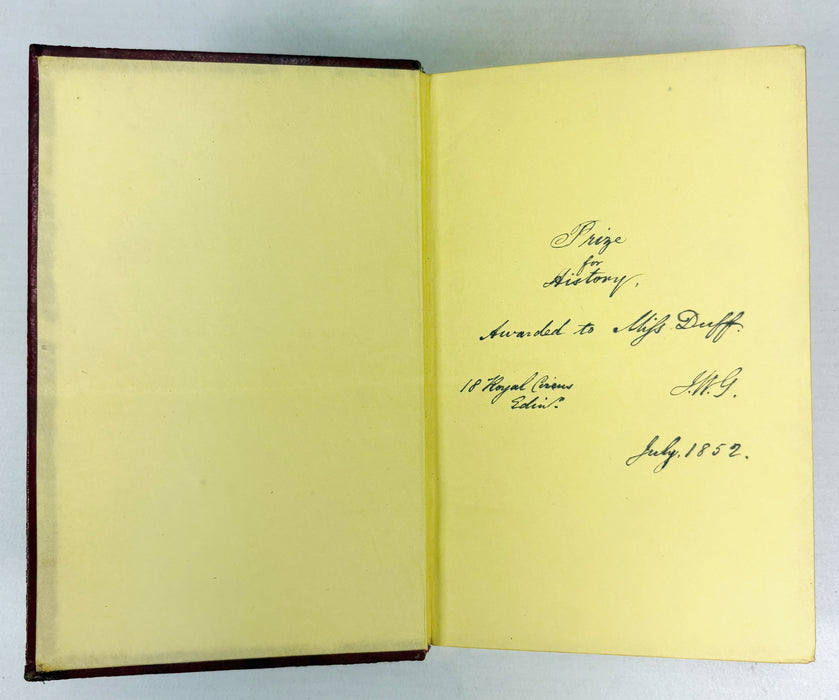 Prize
for
History,
Awarded to Miſs Duff.
18 Royal Circus
Edinr.
J.W.G.
July. 1852.